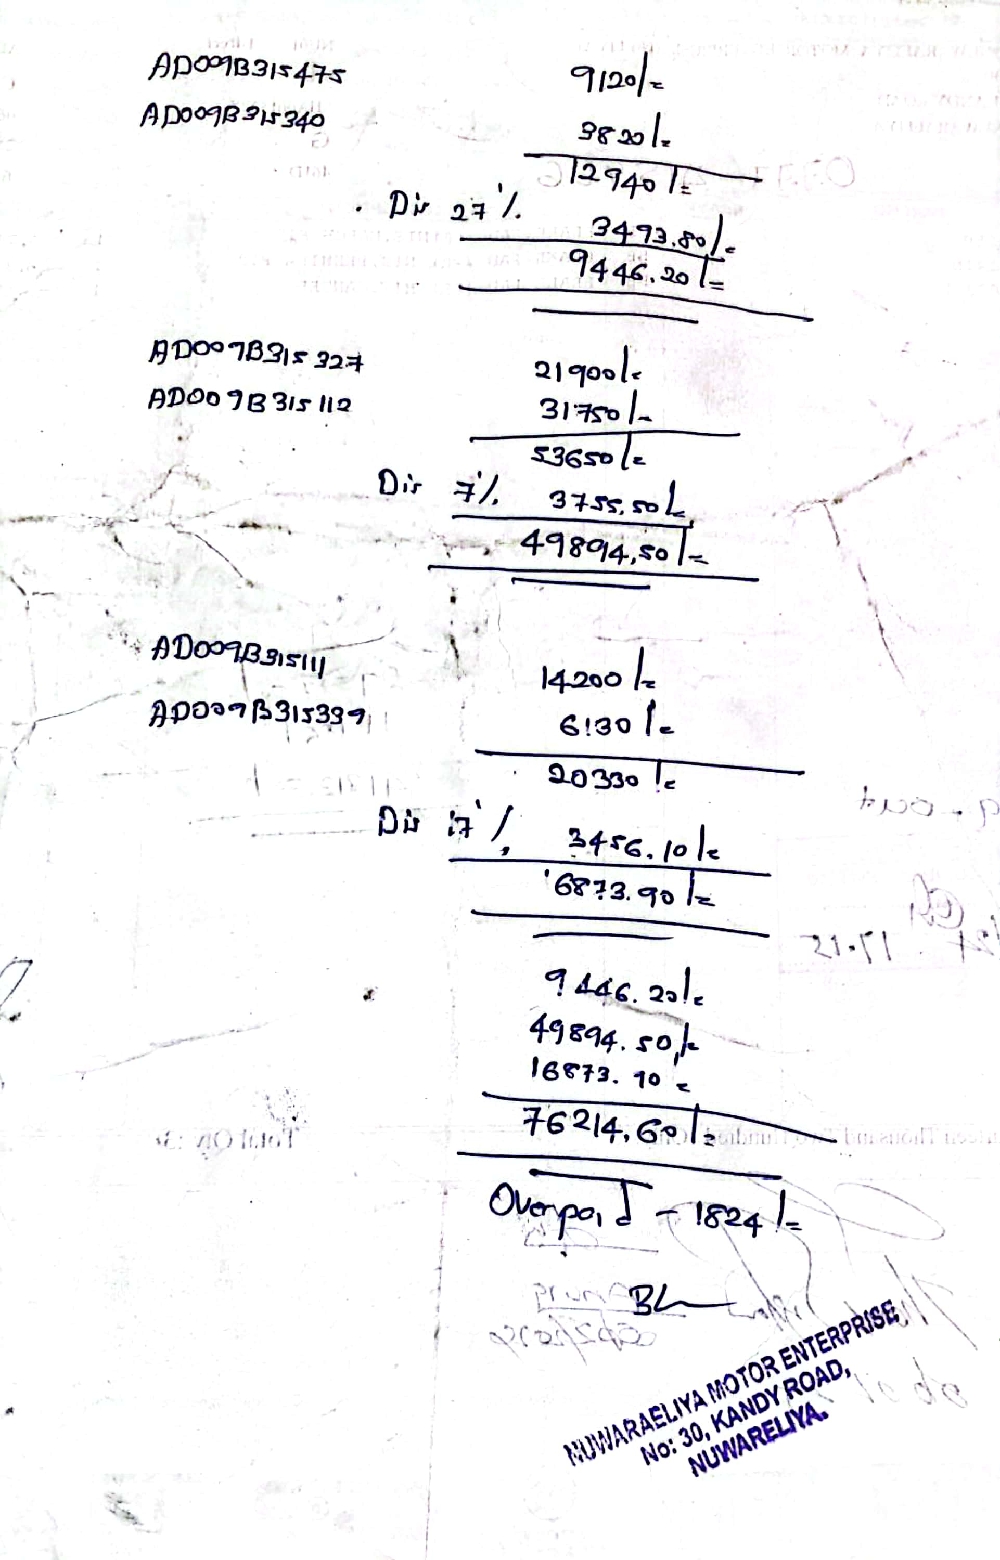 AD009B315475 9120/=
AD009B315340 3820/=
12940/=
Dis 27% 3493.80/=
9446.20/=
AD009B315327 21900/=
AD009B315112 31750/=
53650/=
Dis 7% 3755.50/=
49894.50/=
AD009B315111 14200/=
AD009B315339 6130/=
20330/=
Dis 17% 3456.10/=
16873.90/=
9446.20/=
49894.50/=
16873.90=
76214.60/=
Overpaid - 1824/=
NUWARAELIYA MOTOR ENTERPRISE
No: 30, KANDY ROAD,
NUWARELIYA.